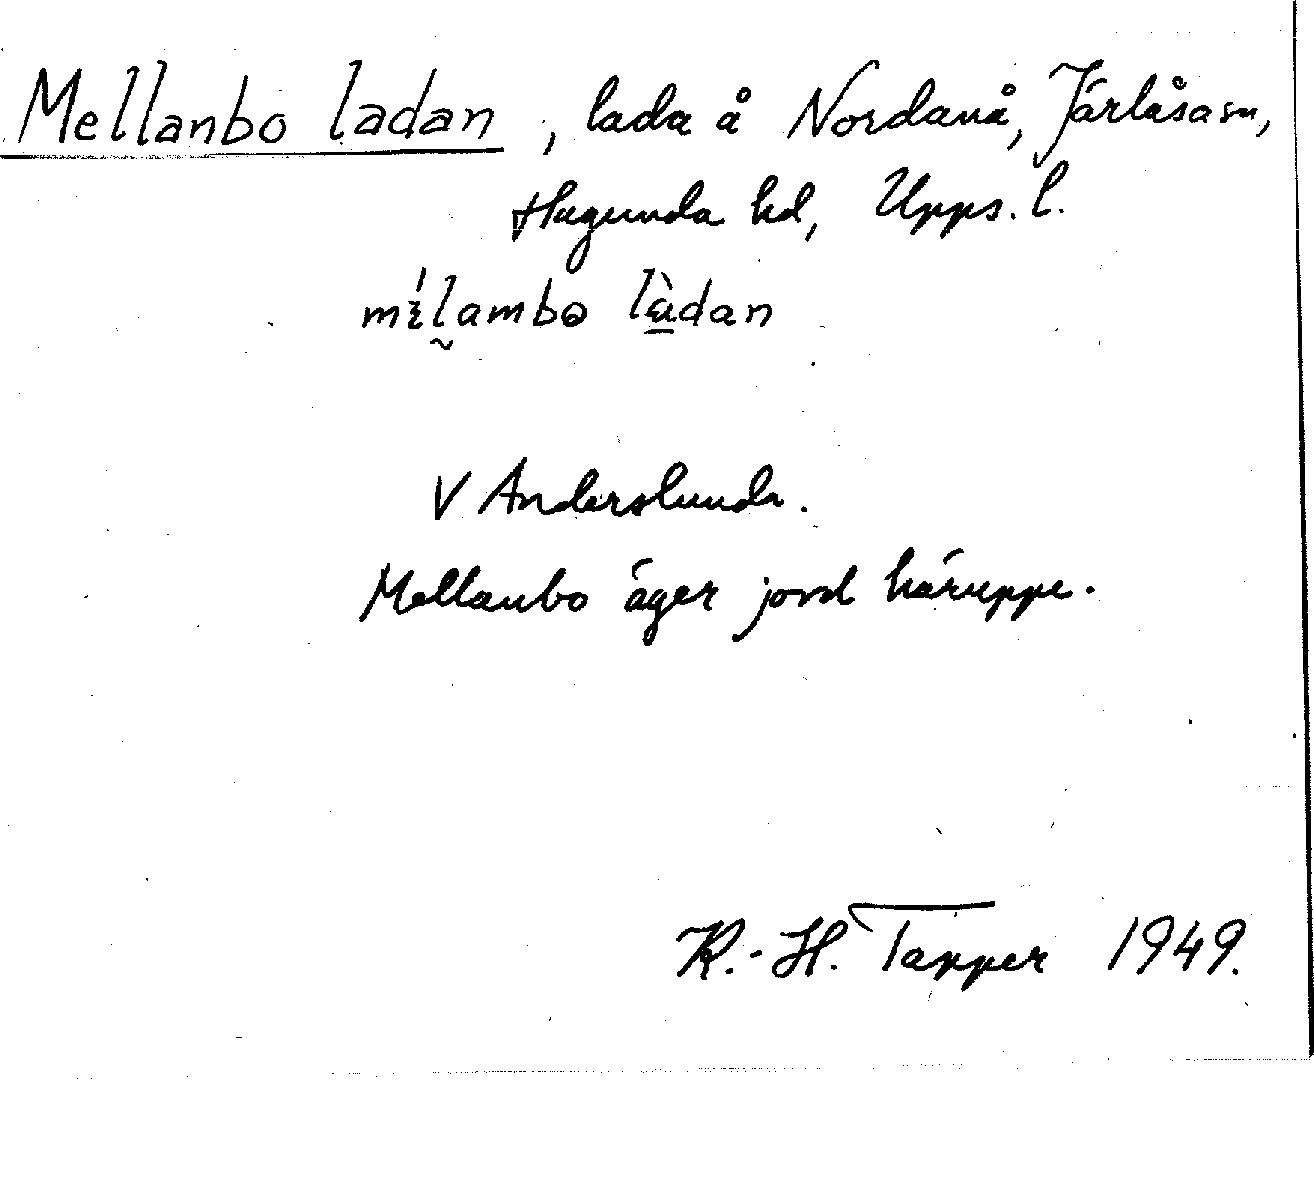 Mellanbo ladan, lada å Nordanå, Järlåsa sn,
Hagunda hd, Upps. l.
V Anderslunda.
Mellanbo äger jord häruppe.
K.-H. Tapper 1949.